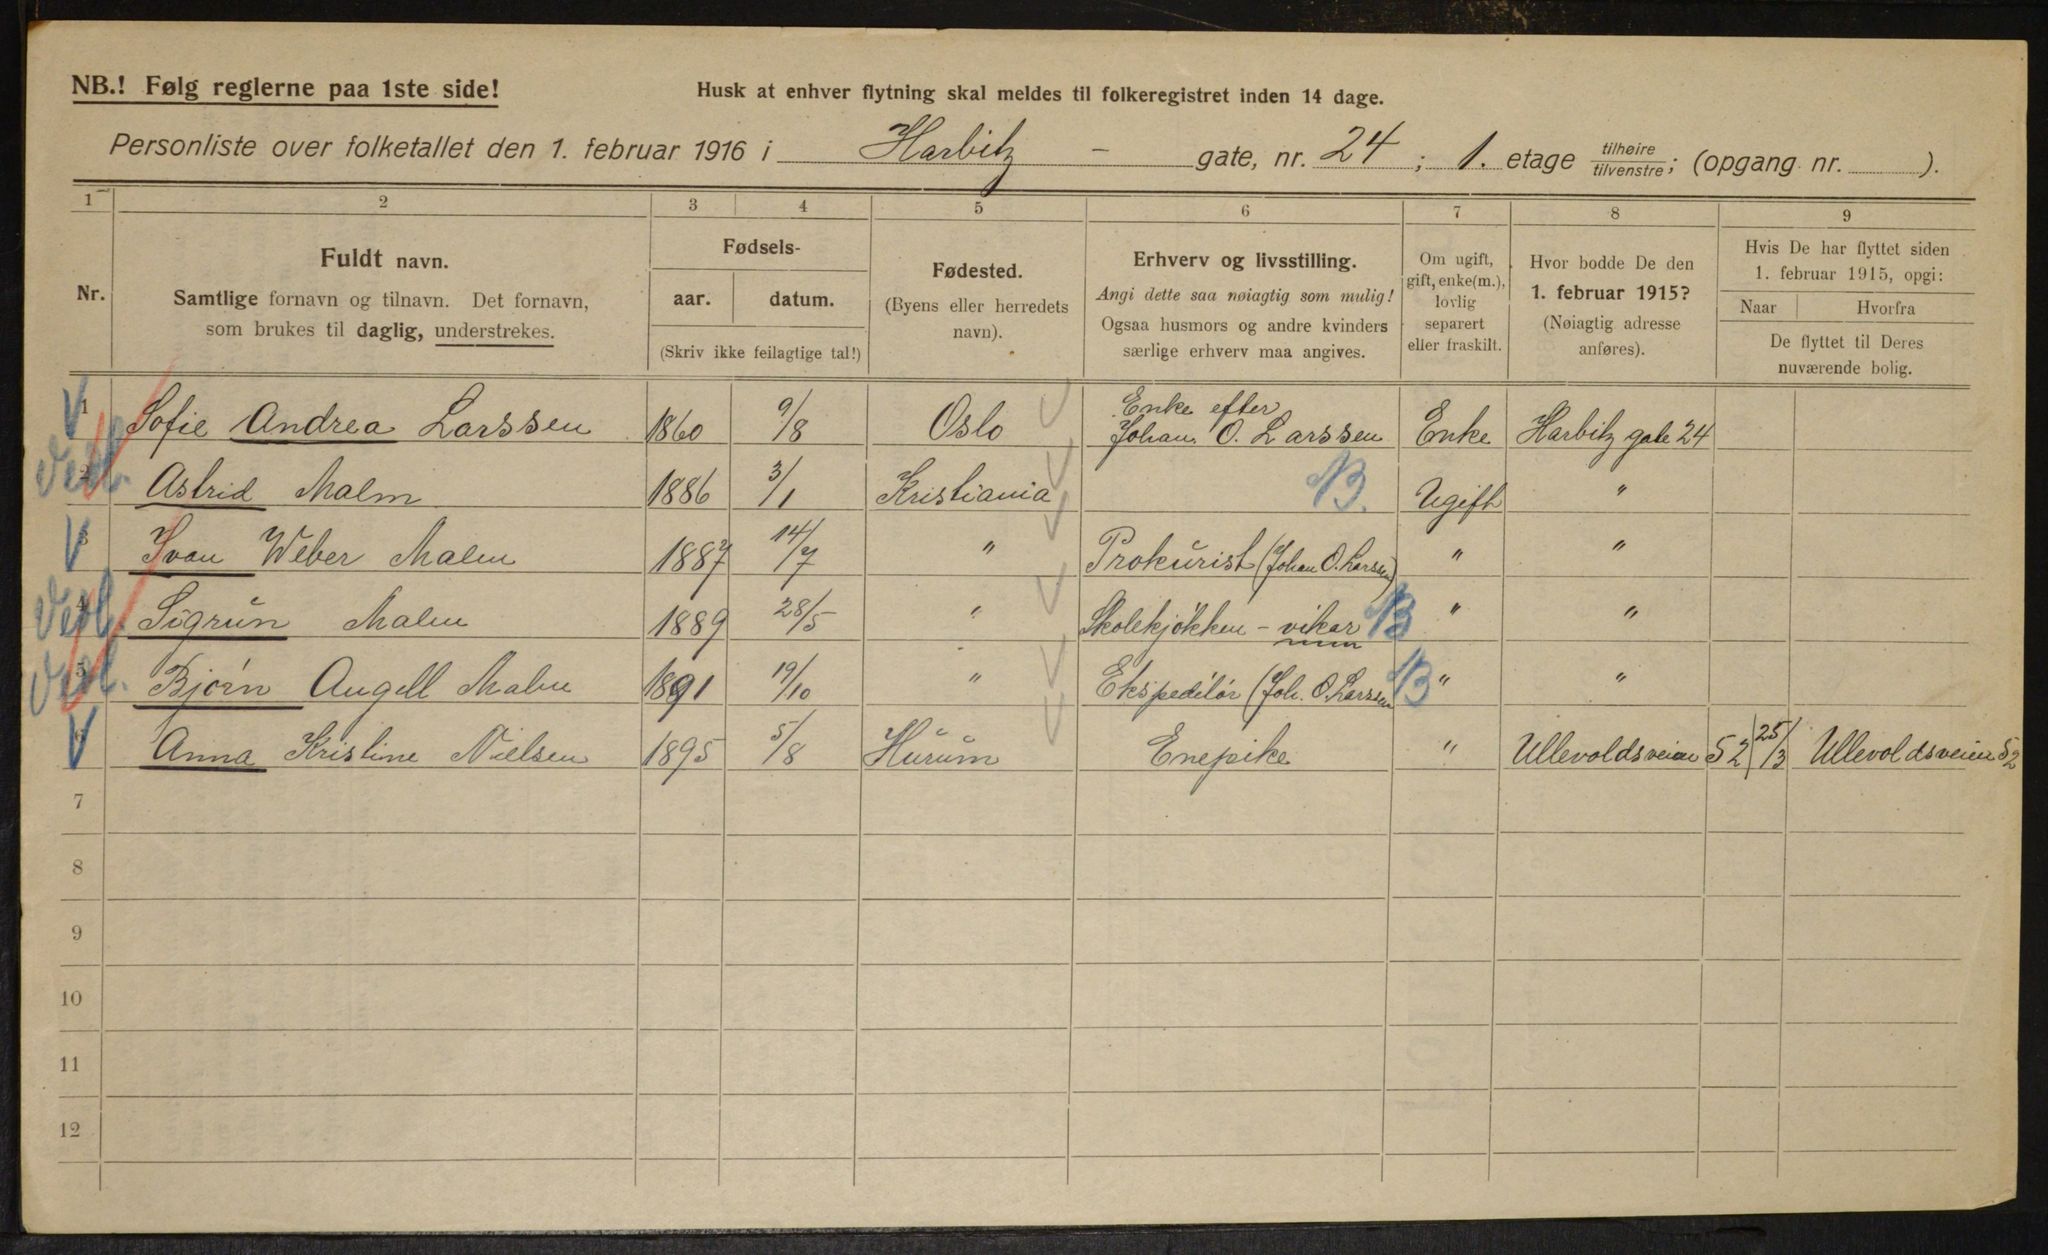 NB.! Følg reglerne paa 1ste side!
Husk at enhver flytning skal meldes til folkeregistret inden 14 dage.
Personliste over folketallet den 1. februar 1916 i Harbitz - gate, nr. 24; 1. etage tilhøire/tilvenstre; (opgang nr. ).
1 2 3 4 5 6 7 8 9
Nr.
Fuldt navn.
Samtlige fornavn og tilnavn. Det fornavn,
som brukes til daglig, understrekes.
Fødsels-
aar. datum.
(Skriv ikke feilagtige tal!)
Fødested.
(Byens eller herredets
navn).
Erhverv og livsstilling.
Angi dette saa nøiagtig som mulig!
Ogsaa husmors og andre kvinders
særlige erhverv maa angives.
Om ugift,
gift, enke(m.),
lovlig
separert
eller fraskilt.
Hvor bodde De den
1. februar 1915?
(Nøiagtig adresse
anføres).
Hvis De har flyttet siden
1. februar 1915, opgi:
Naar Hvorfra
De flyttet til Deres
nuværende bolig.
V 1 Sofie Andrea Larssen 1860 9/8 Oslo Enke efter
Johan O. Larssen Enke Harbitz gate 24
2 Astrid Malm 1886 3/1 Kristiania B. Ugift "
V 3 Ivan Weber Malm 1887 14/7 " Prokurist (Johan O. Larssen) " "
4 Sigrun Malm 1889 28/5 " Skolekjökken - vikar B " "
5 Bjørn Angell Malm 1891 19/10 " Ekspeditör (Joh. O. Larssen B " "
V 6 Anna Kristine Nielsen 1895 5/8 Hurum Enepike " Ullevoldsveien 52 25/3 Ullevoldsveien 52
7
8
9
10
11
12